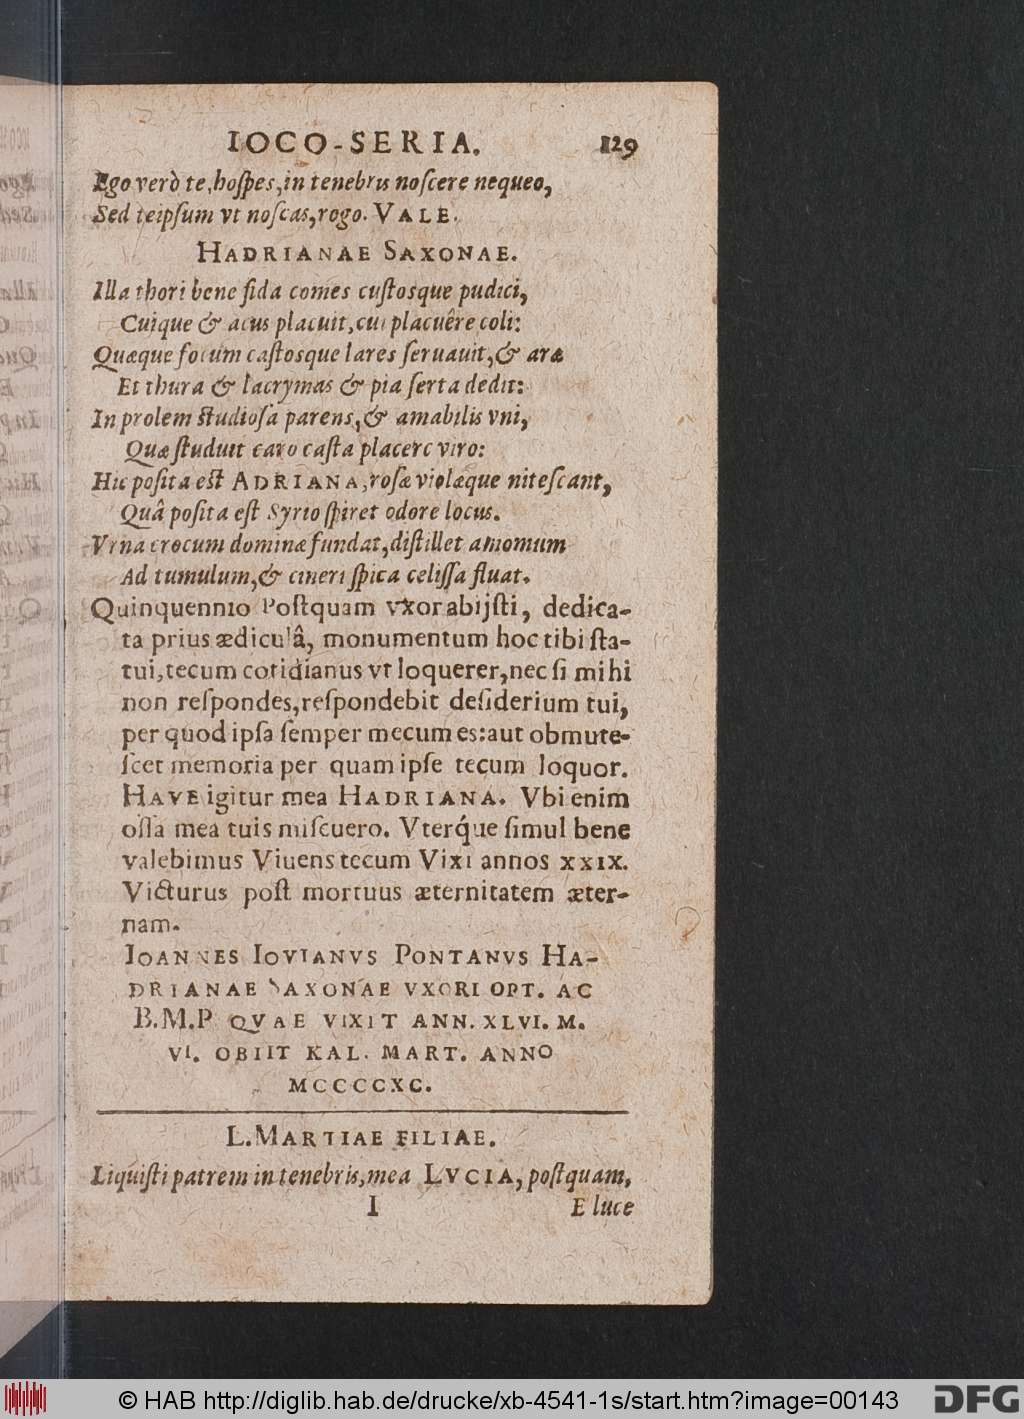 IOCO-SERIA. 129
Ego verò te, hospes, in tenebris noscere nequeo,
Sed teipsum vt noscas, rogo. VALE.
HADRIANAE SAXONAE.
Illa thori bene fida comes custosque pudici,
Cuique & acus placuit, cui placuêre coli:
Quæque focum castosque lares seruauit, & aræ
Et thura & lacrymas & pia serta dedit:
In prolem studiosa parens, & amabilis vni,
Quæ studuit caro casta placere viro:
Hic posita est ADRIANA, rosæ violæque nitescant,
Quâ posita est Syrio spiret odore locus.
Vrna crocum dominæ fundat, distillet amomum
Ad tumulum, & cineri spica celissa fluat.
Quinquennio Postquam vxor abijsti, dedica-
ta prius ædiculâ, monumentum hoc tibi sta-
tui, tecum cotidianus vt loquerer, nec si mihi
non respondes, respondebit desiderium tui,
per quod ipsa semper mecum es: aut obmute-
scet memoria per quam ipse tecum loquor.
HAVE igitur mea HADRIANA. Vbi enim
ossa mea tuis miscuero. Vterq́ue simul bene
valebimus Viuens tecum Vixi annos XXIX.
Victurus post mortuus æternitatem æter-
nam.
IOANNES IOVIANVS PONTANVS HA-
DRIANAE SAXONAE VXORI OPT. AC
B.M.P QVAE VIXIT ANN. XLVI. M.
VI. OBIIT KAL. MART. ANNO
MCCCCXC.
L. MARTIAE FILIAE.
Liquisti patrem in tenebris, mea LVCIA, postquam,
I E luce
© HAB http://diglib.hab.de/drucke/xb-4541-1s/start.htm?image=00143 DFG